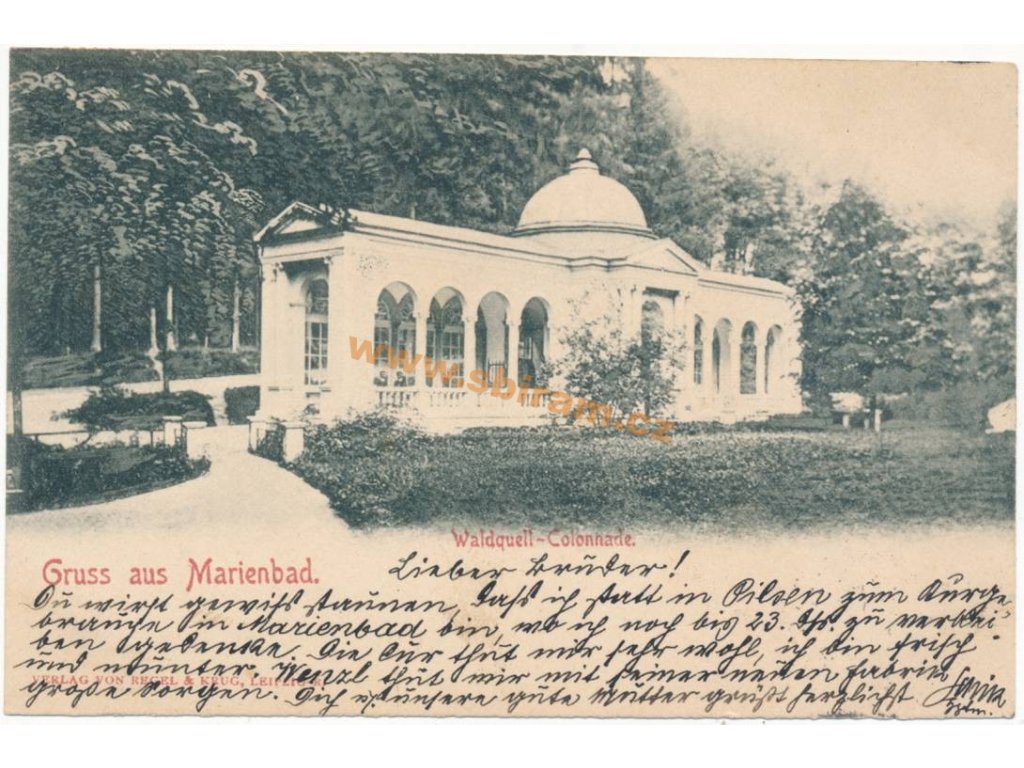 www.sbiram.cz
Waldquell-Colonnade.
Gruss aus Marienbad.
Lieber Bruder!
Du wirst gewiß staunen, daß ich statt in Pilsen zum Kurge-
brauche in Marienbad bin, wo ich noch bis 23. zu verblei-
ben gedenke. Die Cur thut mir sehr wohl, ich bin frisch
und munter. Wenzl thut mir mit seiner neuen Fabrik
VERLAG VON REGEL & KRUG, LEIPZIG
große Sorgen. Dich u. unsere gute Mutter grüßt herzlichst